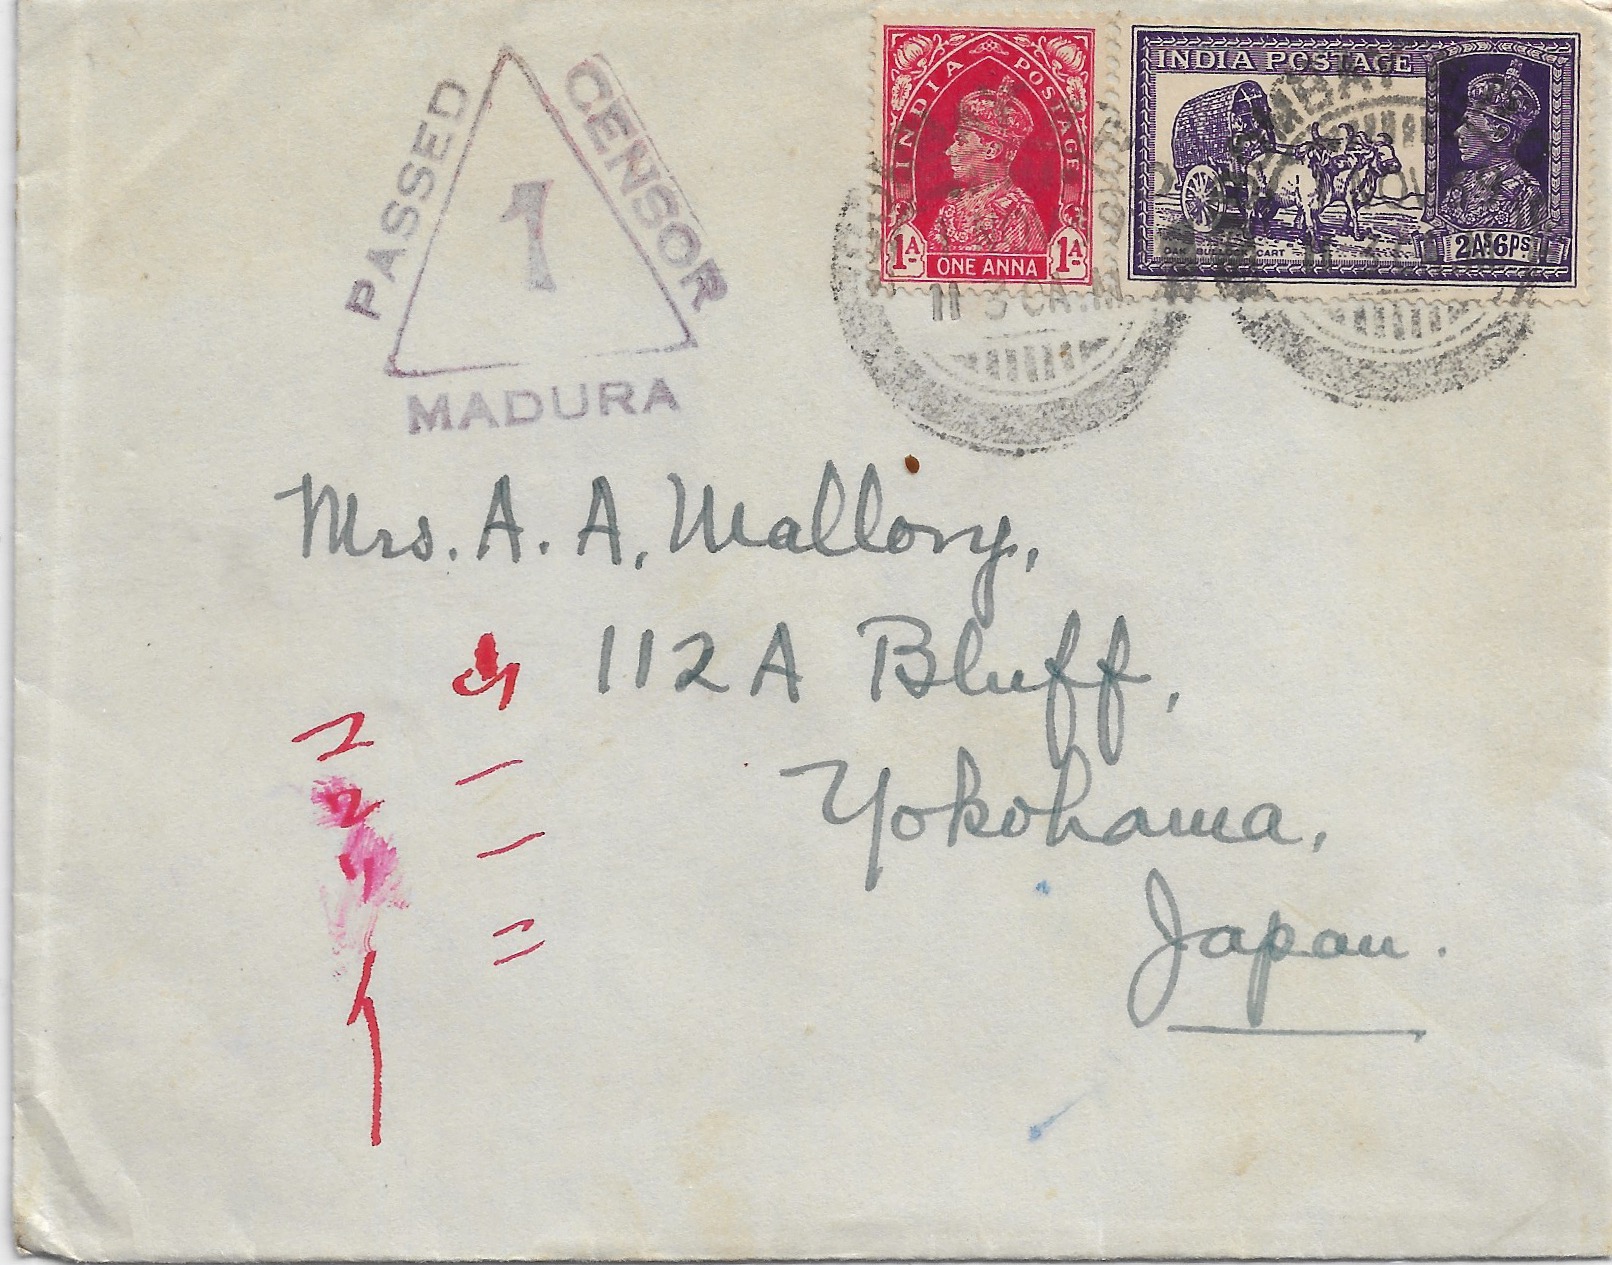 PASSED
CENSOR
1
MADURA
INDIA POSTAGE
1A
ONE ANNA
1A
INDIA POSTAGE
2As6ps
11-30A.M.
Mrs. A. A. Mallory,
112A Bluff,
Yokohama,
Japan.
山
一
一
二